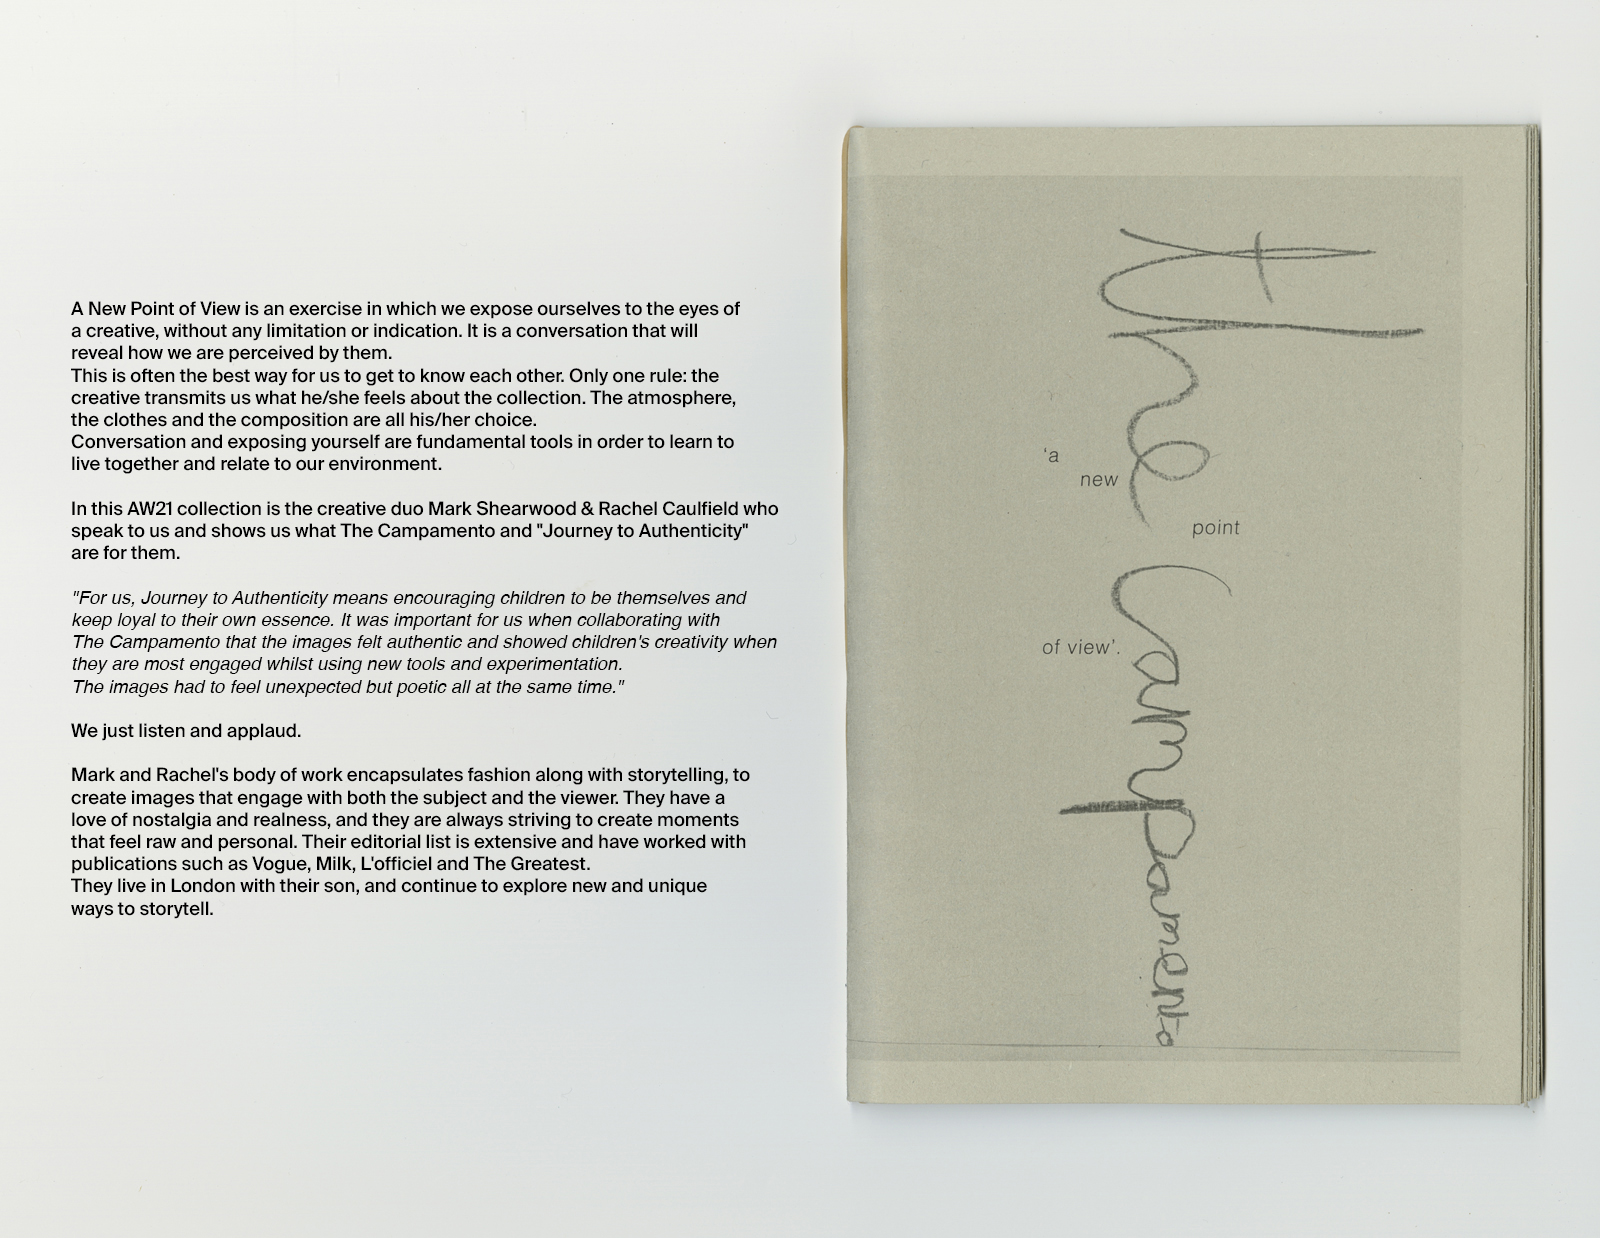 A New Point of View is an exercise in which we expose ourselves to the eyes of
a creative, without any limitation or indication. It is a conversation that will
reveal how we are perceived by them.
This is often the best way for us to get to know each other. Only one rule: the
creative transmits us what he/she feels about the collection. The atmosphere,
the clothes and the composition are all his/her choice.
Conversation and exposing yourself are fundamental tools in order to learn to
live together and relate to our environment.
In this AW21 collection is the creative duo Mark Shearwood & Rachel Caulfield who
speak to us and shows us what The Campamento and "Journey to Authenticity"
are for them.
"For us, Journey to Authenticity means encouraging children to be themselves and
keep loyal to their own essence. It was important for us when collaborating with
The Campamento that the images felt authentic and showed children's creativity when
they are most engaged whilst using new tools and experimentation.
The images had to feel unexpected but poetic all at the same time."
We just listen and applaud.
Mark and Rachel's body of work encapsulates fashion along with storytelling, to
create images that engage with both the subject and the viewer. They have a
love of nostalgia and realness, and they are always striving to create moments
that feel raw and personal. Their editorial list is extensive and have worked with
publications such as Vogue, Milk, L'officiel and The Greatest.
They live in London with their son, and continue to explore new and unique
ways to storytell.
the Campamento
'a
new
point
of view'.